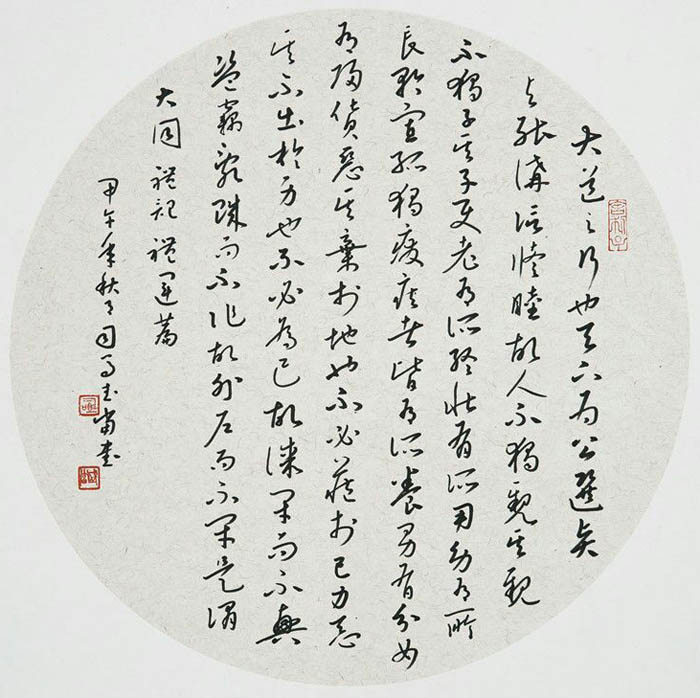 大道之行也天下为公選賢
与能講信修睦故人不獨親其親
不獨子其子使老有所終壯有所用幼有所
長矜寡孤獨廢疾者皆有所養男有分女
有歸貨惡其棄於地也不必藏於己力惡
其不出於身也不必為己故謀閉而不興
盜竊亂賊而不作故外户而不閉是謂
大同 禮記 禮運篇
甲午年秋月司马武當書